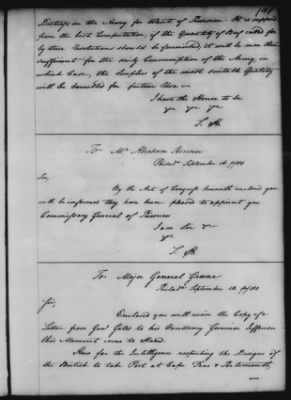 Distress in the Army for Want of Provision. It is supposed
from the best Computation, if the Quantity of Beef called for
by these Resolutions should be furnished, it will be more than
sufficient for the daily Consumption of the Army, in
which Case, the Surplus of the most suitable Quality
will be for future Use
I have the Honor to be
&c &c &c
S. H.
To Mr Abraham Skinner
Philada September 16 1780
Sir,
By the Act of Congress herewith enclosed you
will be informed they have been pleased to appoint you
Commissary General of Prisoners
I am Sir &c
&c
S. H.
To Major General Greene
Philada September 18. 1780
Sir,
Enclosed you will receive the Copy of a
Letter from Genl Gates to his Excellency Governor Jefferson
this Moment come to Hand.
How far the Intelligence respecting the Designs of
the British to take Post at Cape Fear & Portsmouth,